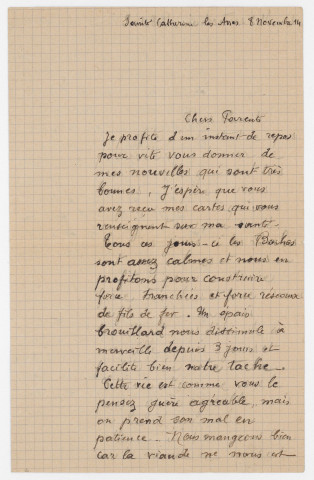 Sainte Catherine les Arras 8 Novembre 14
Chers Parents
Je profite d'un instant de repos
pour vite vous donner de
mes nouvelles qui sont très
bonnes, J'espère que vous
avez reçu mes cartes qui vous
renseignent sur ma santé.
Tous ces jours-ci les Boches
sont assez calmes et nous en
profitons pour construire
force tranchées et force réseaux
de fils de fer. Un épais
brouillard nous dissimule à
merveille depuis 3 jours et
facilite bien notre tâche.
Cette vie est comme vous le
pensez guère agréable, mais
on prend son mal en
patience. Nous mangeons bien
car la viande ne nous est